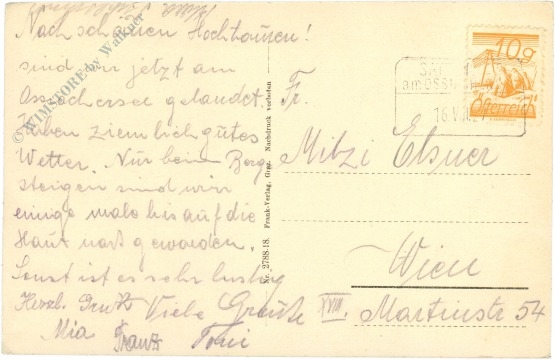 Nach schönen Hochtouren!
sind wir jetzt am
Ossiachersee gelandet.
Haben ziemlich gutes
Wetter. Nur beim Berg
steigen sind wir
einige male bis auf die
Haut naß geworden.
Sonst ist es sehr lustig
Herzl. Gruß Viele Grüße
Mia Franz Toni
© WIMSTORE by Walkner
Nr. 2788-18. Frank-Verlag, Graz. Nachdruck verboten
10g
Österreich
am OSSI
16.V
Fr.
Mitzi Elsner
Wien
XVIII. Martinstr 54